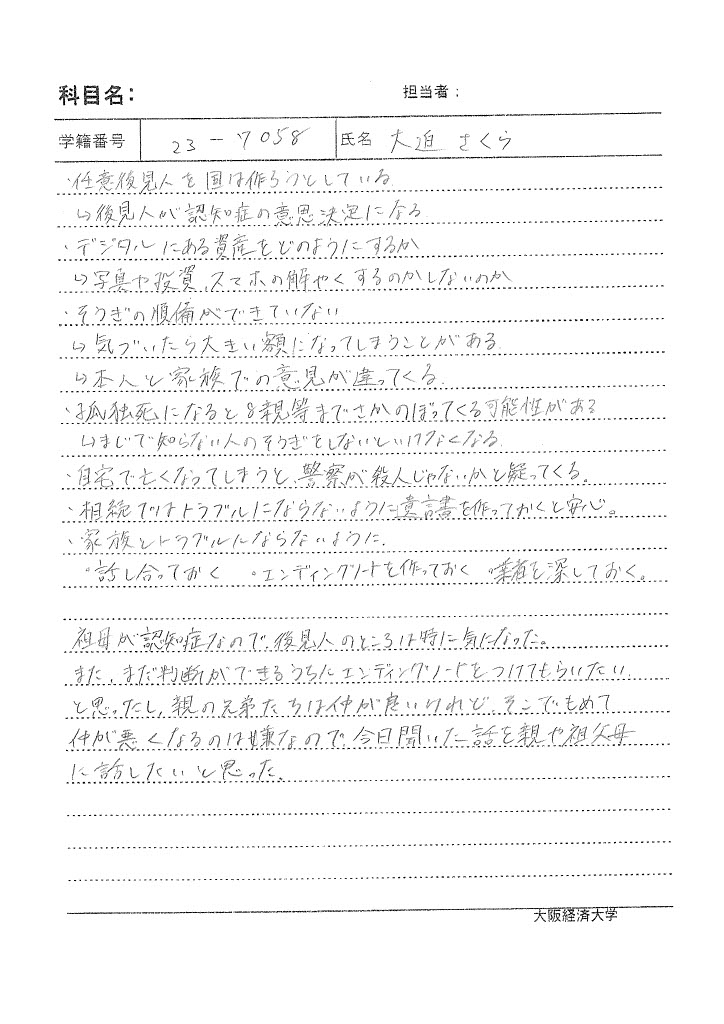 科目名:
担当者:
学籍番号 23-7058 氏名 大迫 さくら
・任意後見人を国は作ろうとしている
↳後見人が認知症の意思決定になる
・デジタルにある資産をどのようにするか
↳写真や投資、スマホの解やくするのかしないのか
・そうぎの順備ができていない
↳気づいたら大きい額になってしまうことがある
↳本人と家族での意見が違ってくる
・孤独死になると8親等までさかのぼってくる可能性がある
↳まじで知らない人のそうぎをしないといけなくなる
・自宅で亡くなってしまうと、警察が殺人じゃないかと疑ってくる。
・相続ではトラブルにならないように遺言書を作っておくと安心。
・家族とトラブルにならないように、
・話し合っておく ・エンディングノートを作っておく ・業者を深しておく。
祖母が認知症なので、後見人のところは特に気になった。
また、まだ判断ができるうちにエンディングノートをつけてもらいたい
と思ったし、親の兄弟たちは仲が良いけれど、そこでもめて
仲が悪くなるのは嫌なので、今日聞いた話を親や祖父母
に話したいと思った。
大阪経済大学